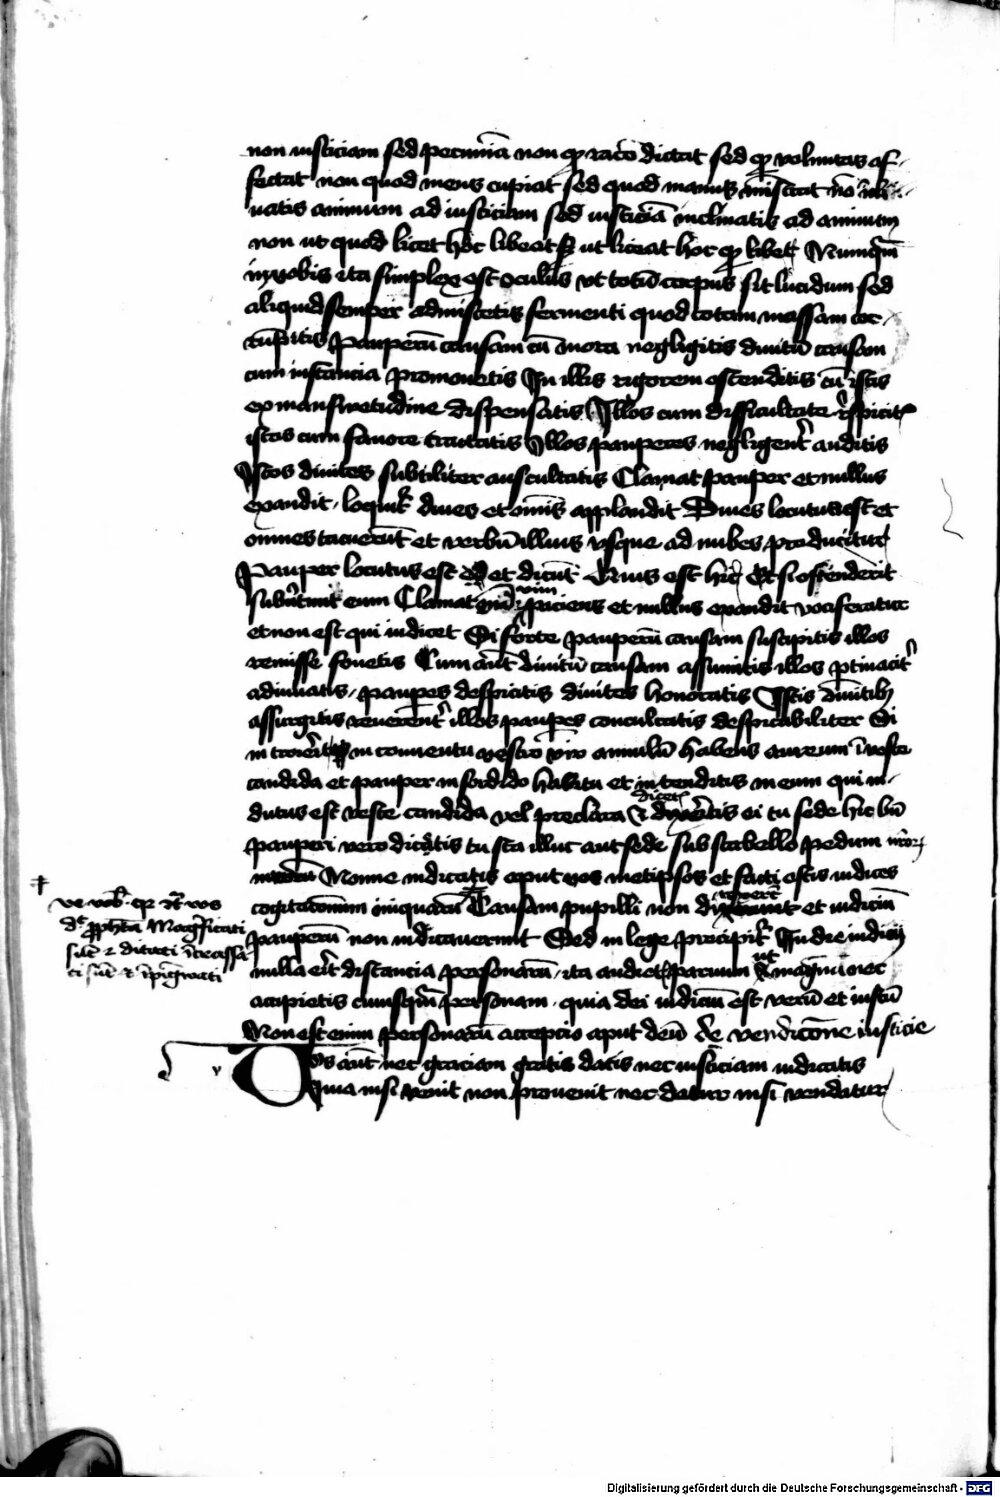 non iusticiam sed pecuniā non qꝫ racō dictat sed qꝫ voluntas af-
fectat non quod mens cupiat sed quod manus
uatis animum ad iusticiam sed iusticiā inclinatis ad animum
non ut quod licet hoc libeat ut liceat hoc qꝫ libet Numqm̄
in vobis ita simplex est oculus ut totū corpus sit lucidum sed
aliquid semper admiscetis fermenti quod totam massam cor-
rūpitis Pauperū causam cū mora negligitis diuitū causam
cum instancia promouetis In illis rigorem ostenditis cū istis
ex mansuetudine dispensatis Illos cum difficultate
istos cum fauore tractatis Illos pauperes negligent̄ auditis
Istos diuites subtiliter auscultatis Clamat pauper et nullus
exaudit loquit̄ diues et omīs applaudit Diues locutus est et
omnes tacuerūt et verbū illius usque ad nubes producitur
Pauper locutus est et dicūt Quis est hic Et si offenderit
subūtent eum Clamat vim paciens et nullus exaudit vociferatur
et non est qui iudicet Si forte pauperū causam suscipitis illos
remisse fouetis Cum aūt diuitū causam assumitis illos ptinacit̄
adiuuatis paupes despicitis diuites honoratis Istis diuitibꝫ
assurgitis reuerent̄ illos paupes conculcatis despicabiliter Si
in conuentu vestro viro annulū habens aureum ī veste
candida et pauper in sordido habitu et intenditis in eum qui in-
dutus est veste candida vel preclara ⁊ dicetis ei tu sede hic bn̄
pauperi vero dicatis tu sta illuc aut sede sub scabello pedum
Nonne iudicatis aput vos metipsos et facti estis iudices
cogitacōnum iniquarū Causam pupilli non et iudiciū
pauperū non iudicauerunt Sed in lege precipit̄ In die iudicij
nulla erit distancia personarū ita audiet paruum ut magnū nec
accipietis cuiusqm̄ personam quia dei iudiciū est verū et iustū
Non est enim personarū accepcio aput deū de vendicōne iusticie
v Vos aūt nec graciam gratis datis nec iusticiam iudicatis
Quia nisi venit non prouenit nec datur nisi vendatur
ve vob̄ qꝫ vos
dē pph̄ta Magnificati
sūt ⁊ ditati īcrassa
ti sūt ⁊ īpīgwati
Digitalisierung gefördert durch die Deutsche Forschungsgemeinschaft - DFG